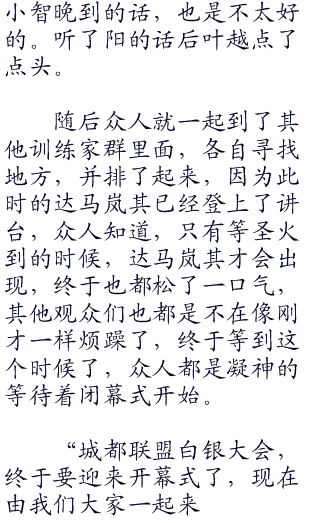 小智晚到的话，也是不太好
的。听了阳的话后叶越点了
点头。
随后众人就一起到了其
他训练家群里面，各自寻找
地方，并排了起来，因为此
时的达马岚其已经登上了讲
台，众人知道，只有等圣火
到的时候，达马岚其才会出
现，终于也都松了一口气，
其他观众们也都是不在像刚
才一样烦躁了，终于等到这
个时候了，众人都是凝神的
等待着闭幕式开始。
“城都联盟白银大会，
终于要迎来开幕式了，现在
由我们大家一起来